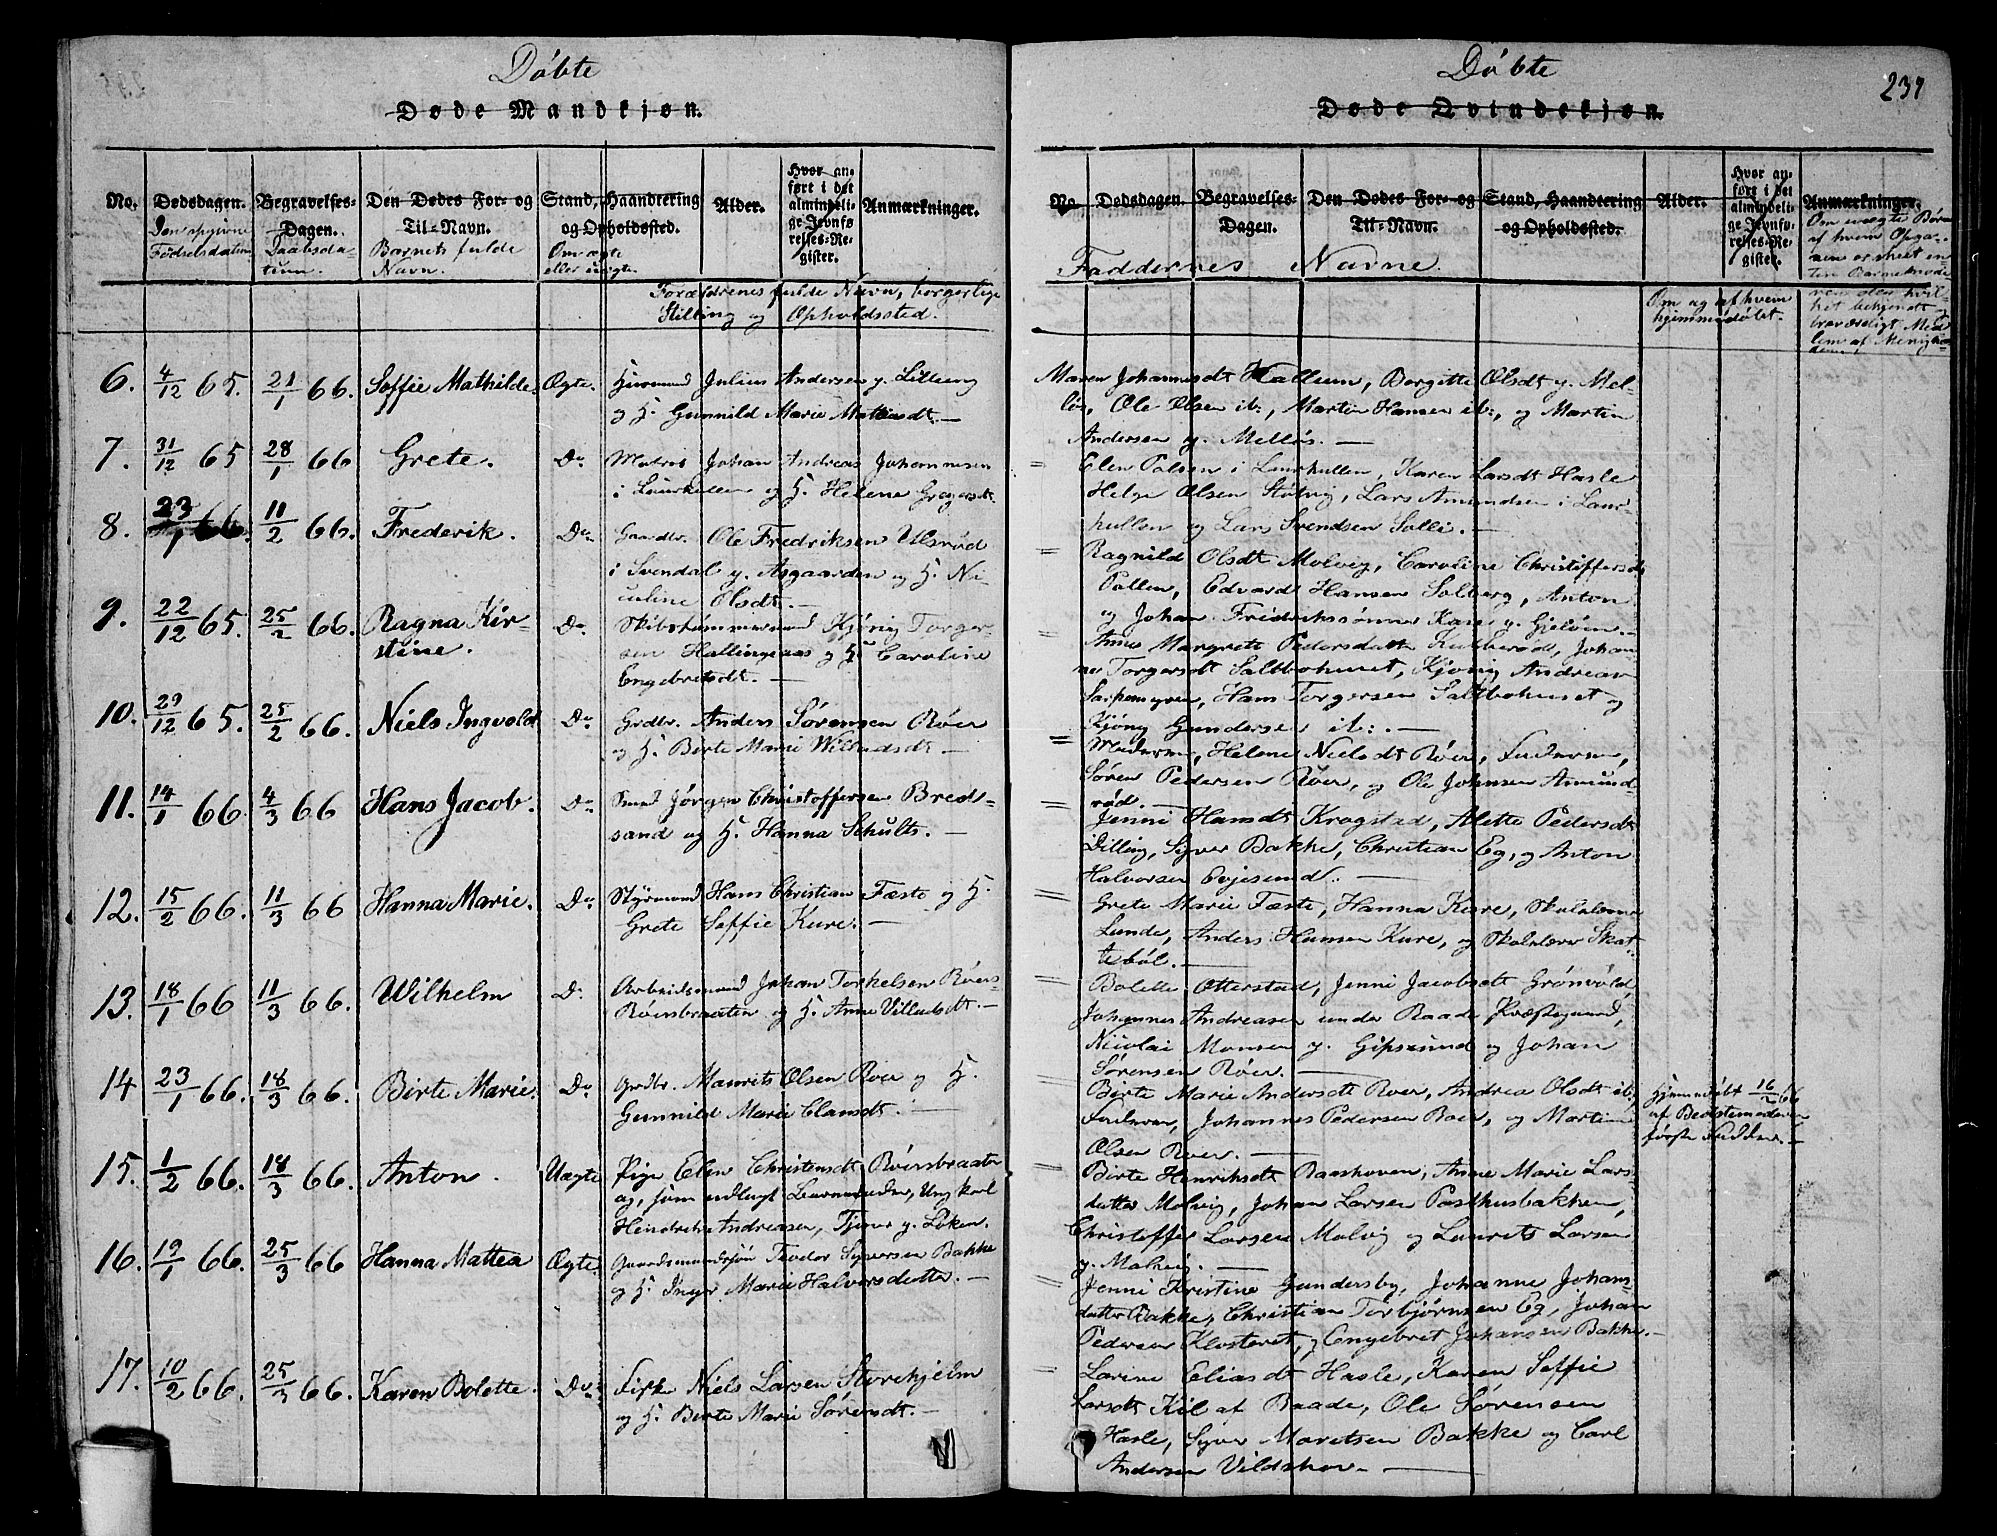 Döbte
Døde Mandkjøn.
No.
Dødsdagen.
Den opgivne
Fødselsdatum
Begravelses-
Dagen.
Daabsda-
tum.
Den Dødes For- og
Til-Navn.
Barnets fulde
Navn.
Stand, Haandtering
og Opholdssted.
Om ægte
eller uægte.
Alder.
Hvor an-
ført i det
almindeli-
ge Jevnfø-
relses-Re-
gister.
Anmærkninger.
Forældrenes fulde Navn, borgerlige
Stilling og Opholdssted.
6. 4/12 65. 21/1 66. Soffie Mathilde. Ægte. Huusmand Julius Andersen y. Dilling
og H. Gunnild Marie Mathisdt. —
7. 31/12 65 28/1 66 Grete. Do Matros Johan Andreas Johannesen
i Laurkullen og H. Helene Gregersdt.
8. 23/1 66. 11/2 66. Frederik. Do Gaardbr. Ole Fredriksen Ulsrød
i Svendal y. Asgaarden og H. Ni-
culine Olsdt. —
9. 22/12 65. 25/2 66. Ragna Kir-
stine. Do Skibstømmermand Kjönig Torger-
sen Hallingaas og H. Caroline
Engebretsdt. —
10. 29/12 65. 25/2 66. Niels Ingvold Do Grdbr. Anders Sörensen Röer
og H. Birte Marie Willadsdt —
11. 14/1 66 4/3 66 Hans Jacob. Do Smed Jörgen Christoffersen Bred-
sand og H. Hanna Schults. —
12. 15/2 66. 11/3 66 Hanna Marie. Do Styrmand Hans Christian Fæste og H.
Grete Soffie Kure. —
13. 18/1 66 11/3 66. Wilhelm D. Arbeidsmand Johan Torkelsen Röer-
Röersbraaten og H. Anne Villadsdt. —
14 23/1 66. 18/3 66. Birte Marie. Do Grdbr. Maurits Olsen Roer og H.
Gunnild Marie Clausdt. —
15. 1/2 66. 18/3 66. Anton. Uægte Pige Elen Christensdt Röersbraaten
og, som udlagt Barnefader, Ungkarl
Hendrik Andreasen, Tjener y. Löken.
16. 19/1 66. 25/3 66 Hanna Mattea Ægte. Gaardmandssön Teodor Syversen Bakke
og H. Inger Marie Halvorsdatter. —
17. 10/2 66. 25/3 66. Karen Bolette. Do Fisker Niels Larsen Storehjelm
og H. Birte Marie Sörensdt. —
Döbte
237
Døde Qvindekjøn.
No.
Dødsdagen.
Begravelses-
Dagen.
Den Dødes For- og
Til-Navn.
Stand, Haandtering
og Opholdssted.
Alder.
Hvor an-
ført i det
almindeli-
ge Jevnfø-
relses-Re-
gister.
Anmærkninger.
Faddernes Navne.
Om og af hvem
hjemmedøbt.
Om uægte Børn
af hvem Opga-
ven er skeet en-
ten Barnemode-
ren eller hvil-
ket bekjendt og
troværdigt Med-
lem af Menighe-
den.
Maren Johannesdt Kallum, Borgitte Olsdt y. Mel-
lös, Ole Olsen ib:, Martin Hansen ib:, og Martin
Andersen y. Mellös. —
= Elen Palsen i Laurkullen, Karen Larsdt Hasle
Helge Olsen Støtvig, Lars Amundsen i Laur-
kullen og Lars Svendsen Solli. —
= Ragnild Olsdt Molvig, Caroline Christoffersdt
Pallen, Edvard Hansen Solberg, Anton
og Johan Fridrikssönner Kase y. Gjelöen. —
= Anne Margrete Pedersdatter Kulberød, Johan-
ne Torgersdt Saltbohuset, Kjönig Andreas
Sarpemyren, Hans Torgersen Saltbohuset og
Kjönig Gundersen ib: . —
= Moderen, Helene Nielsdt Röer, Faderen,
Sören Pedersen Röer, og Ole Johnsen Amund-
röd. —
Jenni Hansdt Krogstad, Alette Pedersdt
Dilling, Syver Bakke, Christian Eg, og Anton
Halvorsen Evjesund. —
= Grete Marie Fæste, Hanna Kure, Skolelærer
Lunde, Anders Hansen Kure, og Skolelærer Skat-
teböl. —
= Bolette Otterstad, Jenni Jacobsdt Grönvold,
Johannes Andreasen under Raade Præstegaard,
Nicolai Monsen y. Gipsund og Johan
Sörensen Röer. —
= Birte Marie Andersdt Roer, Andrea Olsdt ib.
Faderen, Johannes Pedersen Roer, og Martin
Olsen Roer. —
Hjemmedöbt 16/2 66
af Bedstemoderen
förste Fadder. —
= Birte Henriksdt Raashoven, Anne Marie Lars-
datter Molvig, Johan Larsen Posthusbakken,
Christoffer Larsen Molvig og Laurits Larsen
y. Molvig. —
= Jenni Kristine Gundersby, Johanne Johans-
datter Bakke, Christian Torbjörnsen Eg, Johan
Pedersen Klosteret, og Engebret Johansen Bakke. —
= Larine Eliasdt Hasle, Karen Soffie
Larsdt Kil af Raade, Ole Sörensen
Hasle, Syver Moretsen Bakke og Carl
Andersen Vildshov. —